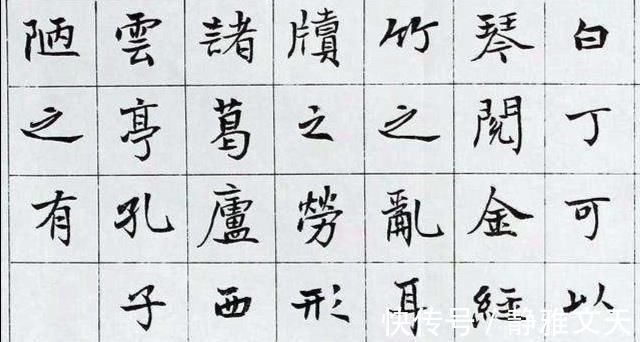 白丁可以
琴閱金經
竹之亂耳
牘之勞形
諸葛廬西
雲亭孔子
陋之有
快传号 / 静雅文天